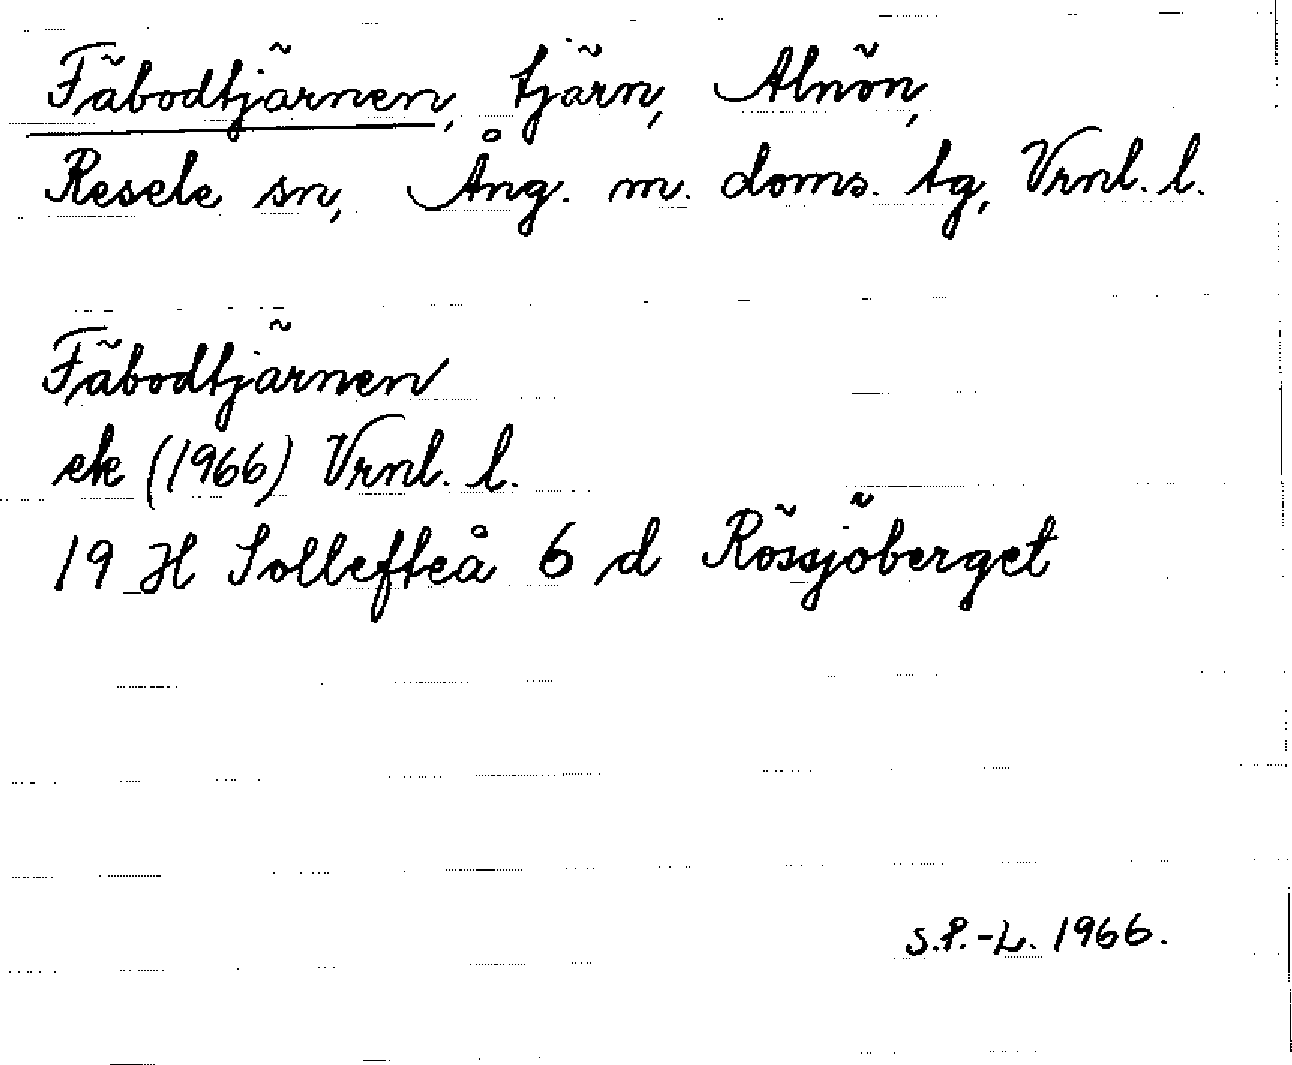 Fäbodtjärnen, tjärn, Alnön,
Resele sn, Ång. m. doms. tg, Vrnl. l.
Fäbodtjärnen
ek (1966) Vrnl. l.
19 H Sollefteå 6 d Rössjöberget
S.P.-L. 1966.